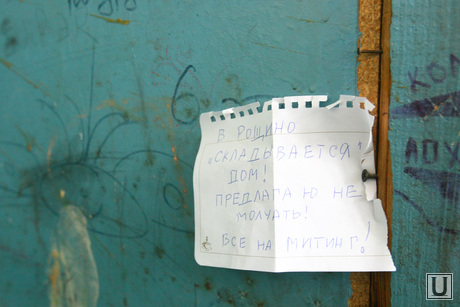 В РОЩИНО
"СКЛАДЫВАЕТСЯ"
ДОМ!
ПРЕДЛАГАЮ НЕ
МОЛЧАТЬ!
ВСЕ НА МИТИНГ!
КОЛ
ЛОХ
6
U